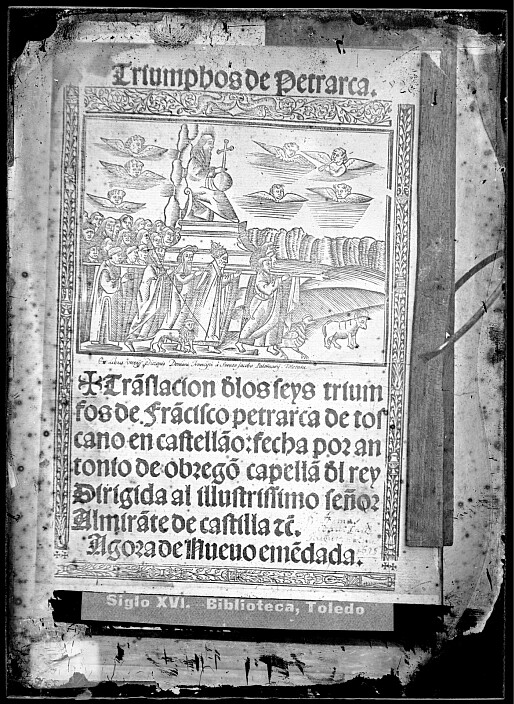 Triumphos de Petrarca.
✠Trãslacion đlos seys trium
fos de Frãcisco petrarca de tos
cano en castellão: fecha por an
tonio de obregõ capellã đl rey
Dirigida al illustrissimo señor
Almirãte de castilla ⁊c̃.
Agora de Nueuo emẽdada.
Siglo XVI. Biblioteca, Toledo